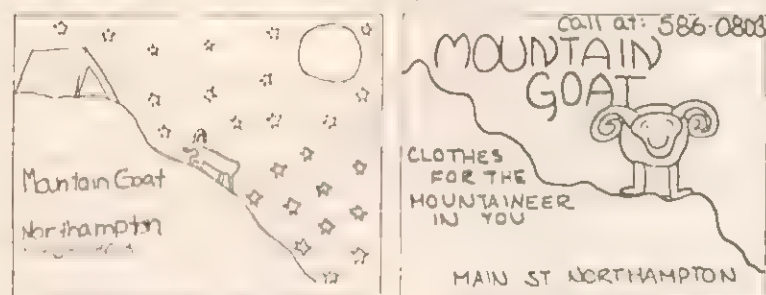 Mountain Goat
Northampton
call at: 586-0803
MOUNTAIN
GOAT
CLOTHES
FOR THE
MOUNTAINEER
IN YOU
MAIN ST NORTHAMPTON